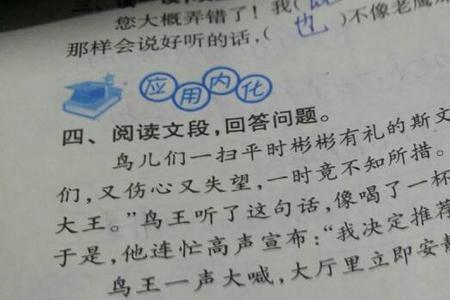 您大概弄错了！我(既)不像老鹰
那样会说好听的话,(也
应用内化
四、阅读文段,回答问题。
鸟儿们一扫平时彬彬有礼的斯文
们,又伤心又失望,一时竟不知所措。
大王。”鸟王听了这句话,像喝了一杯
于是,他连忙高声宣布:“我决定推荐
鸟王一声大喊,大厅里立即安静